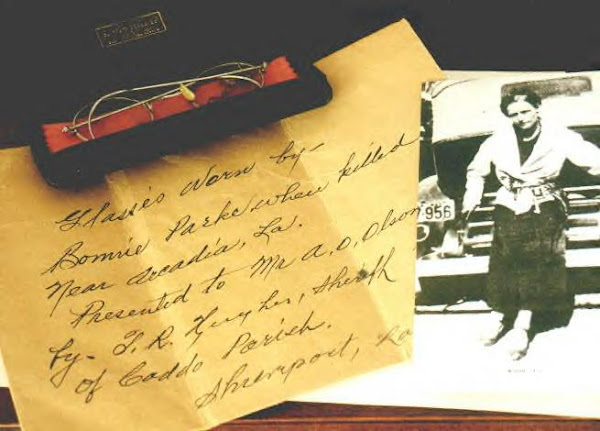 Glasses Worn by-
Bonnie Parke when killed
Near Arcadia, La.
Presented to Mr A. O. Olson
by- T. R. Hughes, Sheriff
of Caddo Parish.
Shreveport, La
956